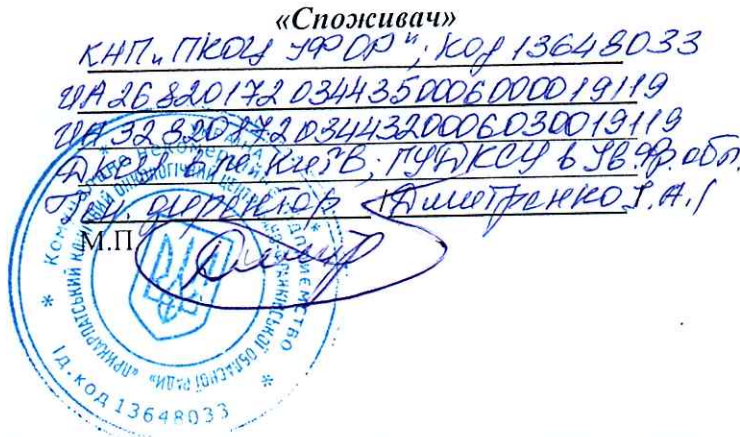 «Споживач»
КНП „ПКОЦ ІФОР"; код 13648033
UA 26 820172 0344350006000019119
UA 32 820172 0344320006030019119
ДКСУ в м. Київ; ГУДКСУ в Ів.Фр. обл.
Ген. директор /Дмитренко І.А./
М.П.
* Комунальне некомерційне підприємство *
«ПРИКАРПАТСЬКИЙ КЛІНІЧНИЙ ОНКОЛОГІЧНИЙ ЦЕНТР
ІВАНО-ФРАНКІВСЬКОЇ ОБЛАСНОЇ РАДИ»
Ід. код 13648033